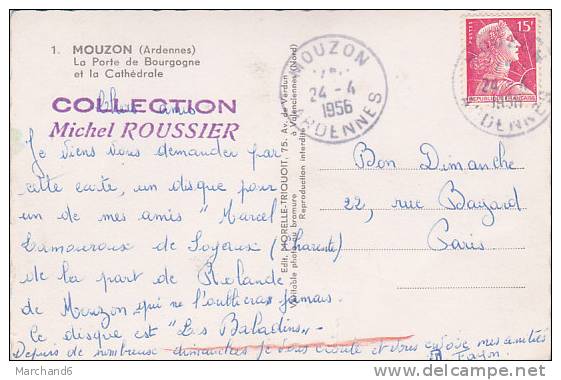 1. MOUZON (Ardennes)
La Porte de Bourgogne
et la Cathédrale
COLLECTION
Michel ROUSSIER
Chers amis
Je viens vous demander par
cette carte, un disque pour
un de mes amis "Marcel
Lamouroux de Soyaux (Charente)
de la part de Rolande
de Mouzon qui ne l'oubliera jamais.
Ce disque est "Les Baladins"
Depuis de nombreux dimanches je vous écoute et vous envoie mes amitiés
Edit. MORELLE-TRIQUOIT, 75, Av. de Verdun
à Valenciennes (Nord)
Véritable photo au bromure
Reproduction interdite
MOUZON
24 - 4
1956
ARDENNES
15F
POSTES
REPUBLIQUE FRANÇAISE
24
ARDENNES
Bon Dimanche
22, rue Bayard
Paris
delcampe.net
mahandry6